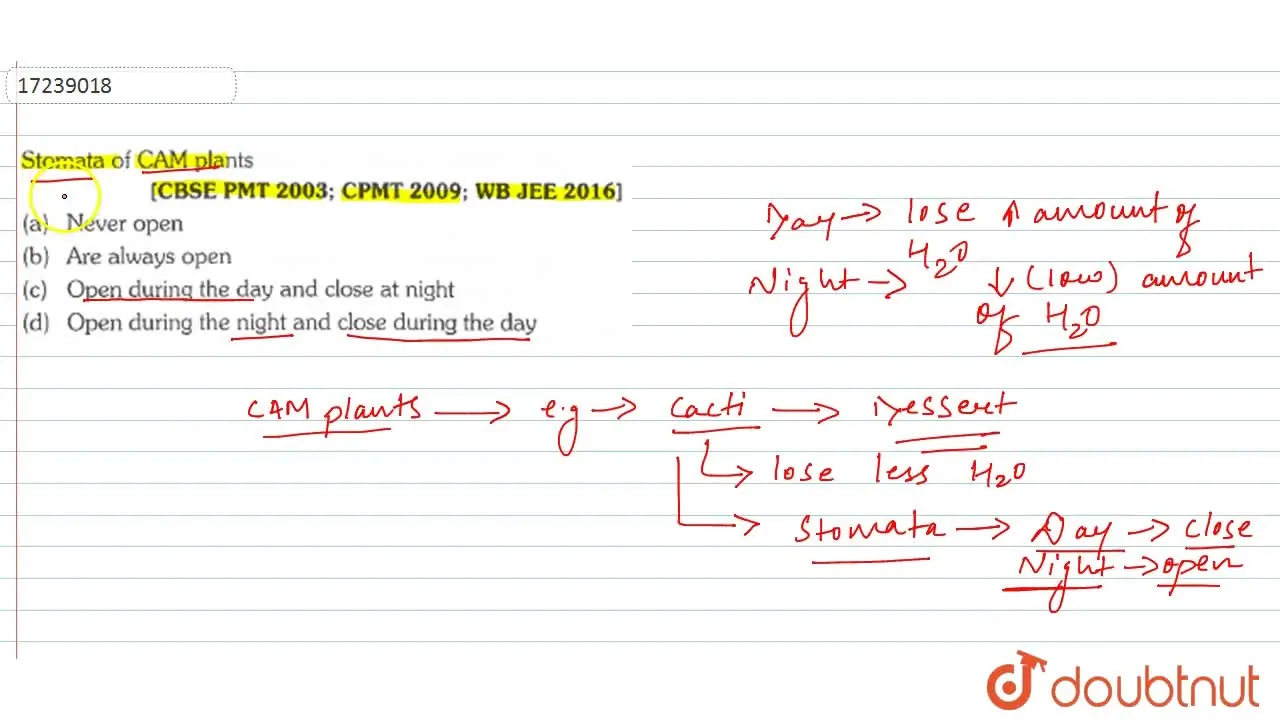 17239018
Stomata of CAM plants
[CBSE PMT 2003; CPMT 2009; WB JEE 2016]
(a) Never open
(b) Are always open
(c) Open during the day and close at night
(d) Open during the night and close during the day
Day → lose ↑ amount of
H2O
Night → ↓ (low) amount
of H2O
CAM plants → e.g → Cacti → Dessert
→ lose less H2O
→ Stomata → Day → close
Night → open
doubtnut